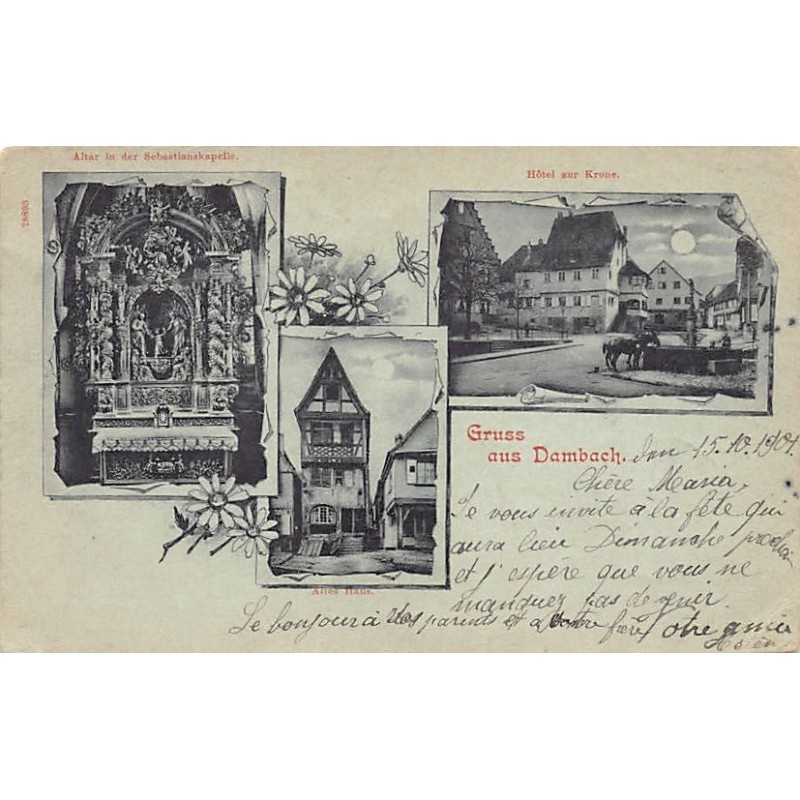 Altar in der Sebastianskapelle.
Hôtel zur Krone.
28893
Gruss
aus Dambach.
den 15.10.1901.
Chère Maria,
Je vous invite à la fête qui
aura lieu Dimanche prochain
et j'espère que vous ne
manquez pas de venir.
Le bonjour à vos parents et à votre frère
Votre amie
Altes Haus.